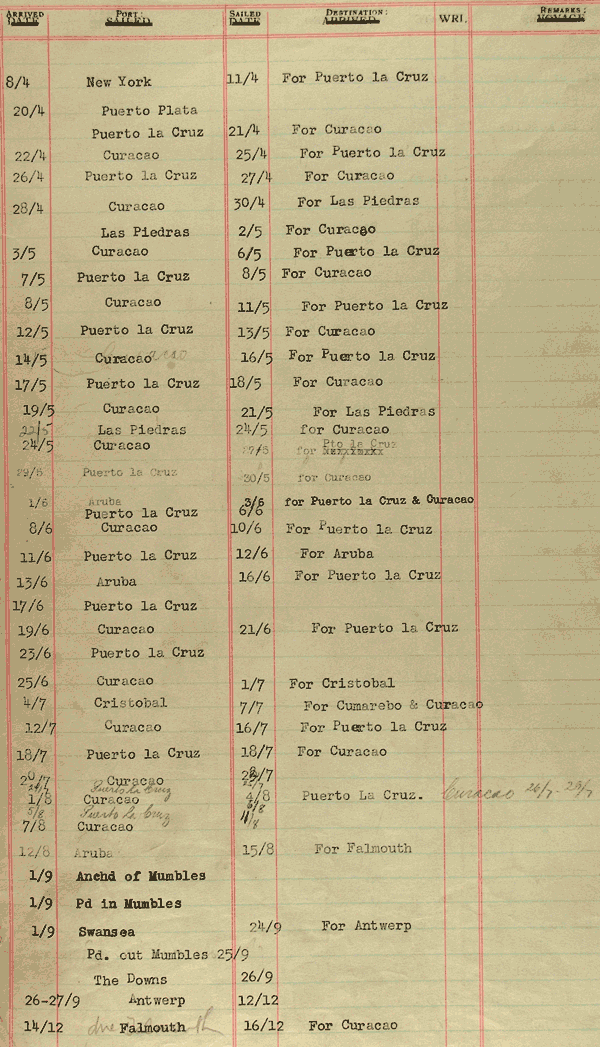 ARRIVED DATE PORT: SAILED SAILED DATE DESTINATION: ARRIVED WRI. REMARKS: VOYAGE
8/4 New York 11/4 For Puerto la Cruz
20/4 Puerto Plata
Puerto la Cruz 21/4 For Curacao
22/4 Curacao 25/4 For Puerto la Cruz
26/4 Puerto la Cruz 27/4 For Curacao
28/4 Curacao 30/4 For Las Piedras
Las Piedras 2/5 For Curacao
3/5 Curacao 6/5 For Puerto la Cruz
7/5 Puerto la Cruz 8/5 For Curacao
8/5 Curacao 11/5 For Puerto la Cruz
12/5 Puerto la Cruz 13/5 For Curacao
14/5 Curacao 16/5 For Puerto la Cruz
17/5 Puerto la Cruz 18/5 For Curacao
19/5 Curacao 21/5 For Las Piedras
22/5 Las Piedras 24/5 for Curacao
24/5 Curacao 27/5 for Pto la Cruz
29/5 Puerto la Cruz 30/5 for Curacao
1/6 Aruba 3/6 for Puerto la Cruz & Curacao
Puerto la Cruz 6/6
8/6 Curacao 10/6 For Puerto la Cruz
11/6 Puerto la Cruz 12/6 For Aruba
13/6 Aruba 16/6 For Puerto la Cruz
17/6 Puerto la Cruz
19/6 Curacao 21/6 For Puerto la Cruz
23/6 Puerto la Cruz
25/6 Curacao 1/7 For Cristobal
4/7 Cristobal 7/7 For Cumarebo & Curacao
12/7 Curacao 16/7 For Puerto la Cruz
18/7 Puerto la Cruz 18/7 For Curacao
20/7 Curacao
Puerto La Cruz
1/8 Curacao 4/8 Puerto La Cruz. Curacao 26/7 - 29/7
5/8 Puerto La Cruz
7/8 Curacao 11/8
12/8 Aruba 15/8 For Falmouth
1/9 Anchd of Mumbles
1/9 Pd in Mumbles
1/9 Swansea 24/9 For Antwerp
Pd. out Mumbles 25/9
The Downs 26/9
26-27/9 Antwerp 12/12
14/12 Falmouth 16/12 For Curacao